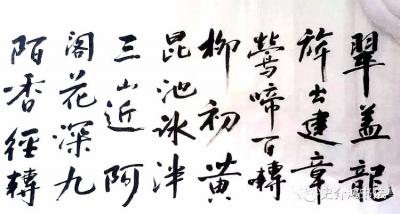 翠盖龍
旂出建章
鶯啼百轉
柳初黄
昆池冰泮
三山近阿
阁花深九
陌香径轉